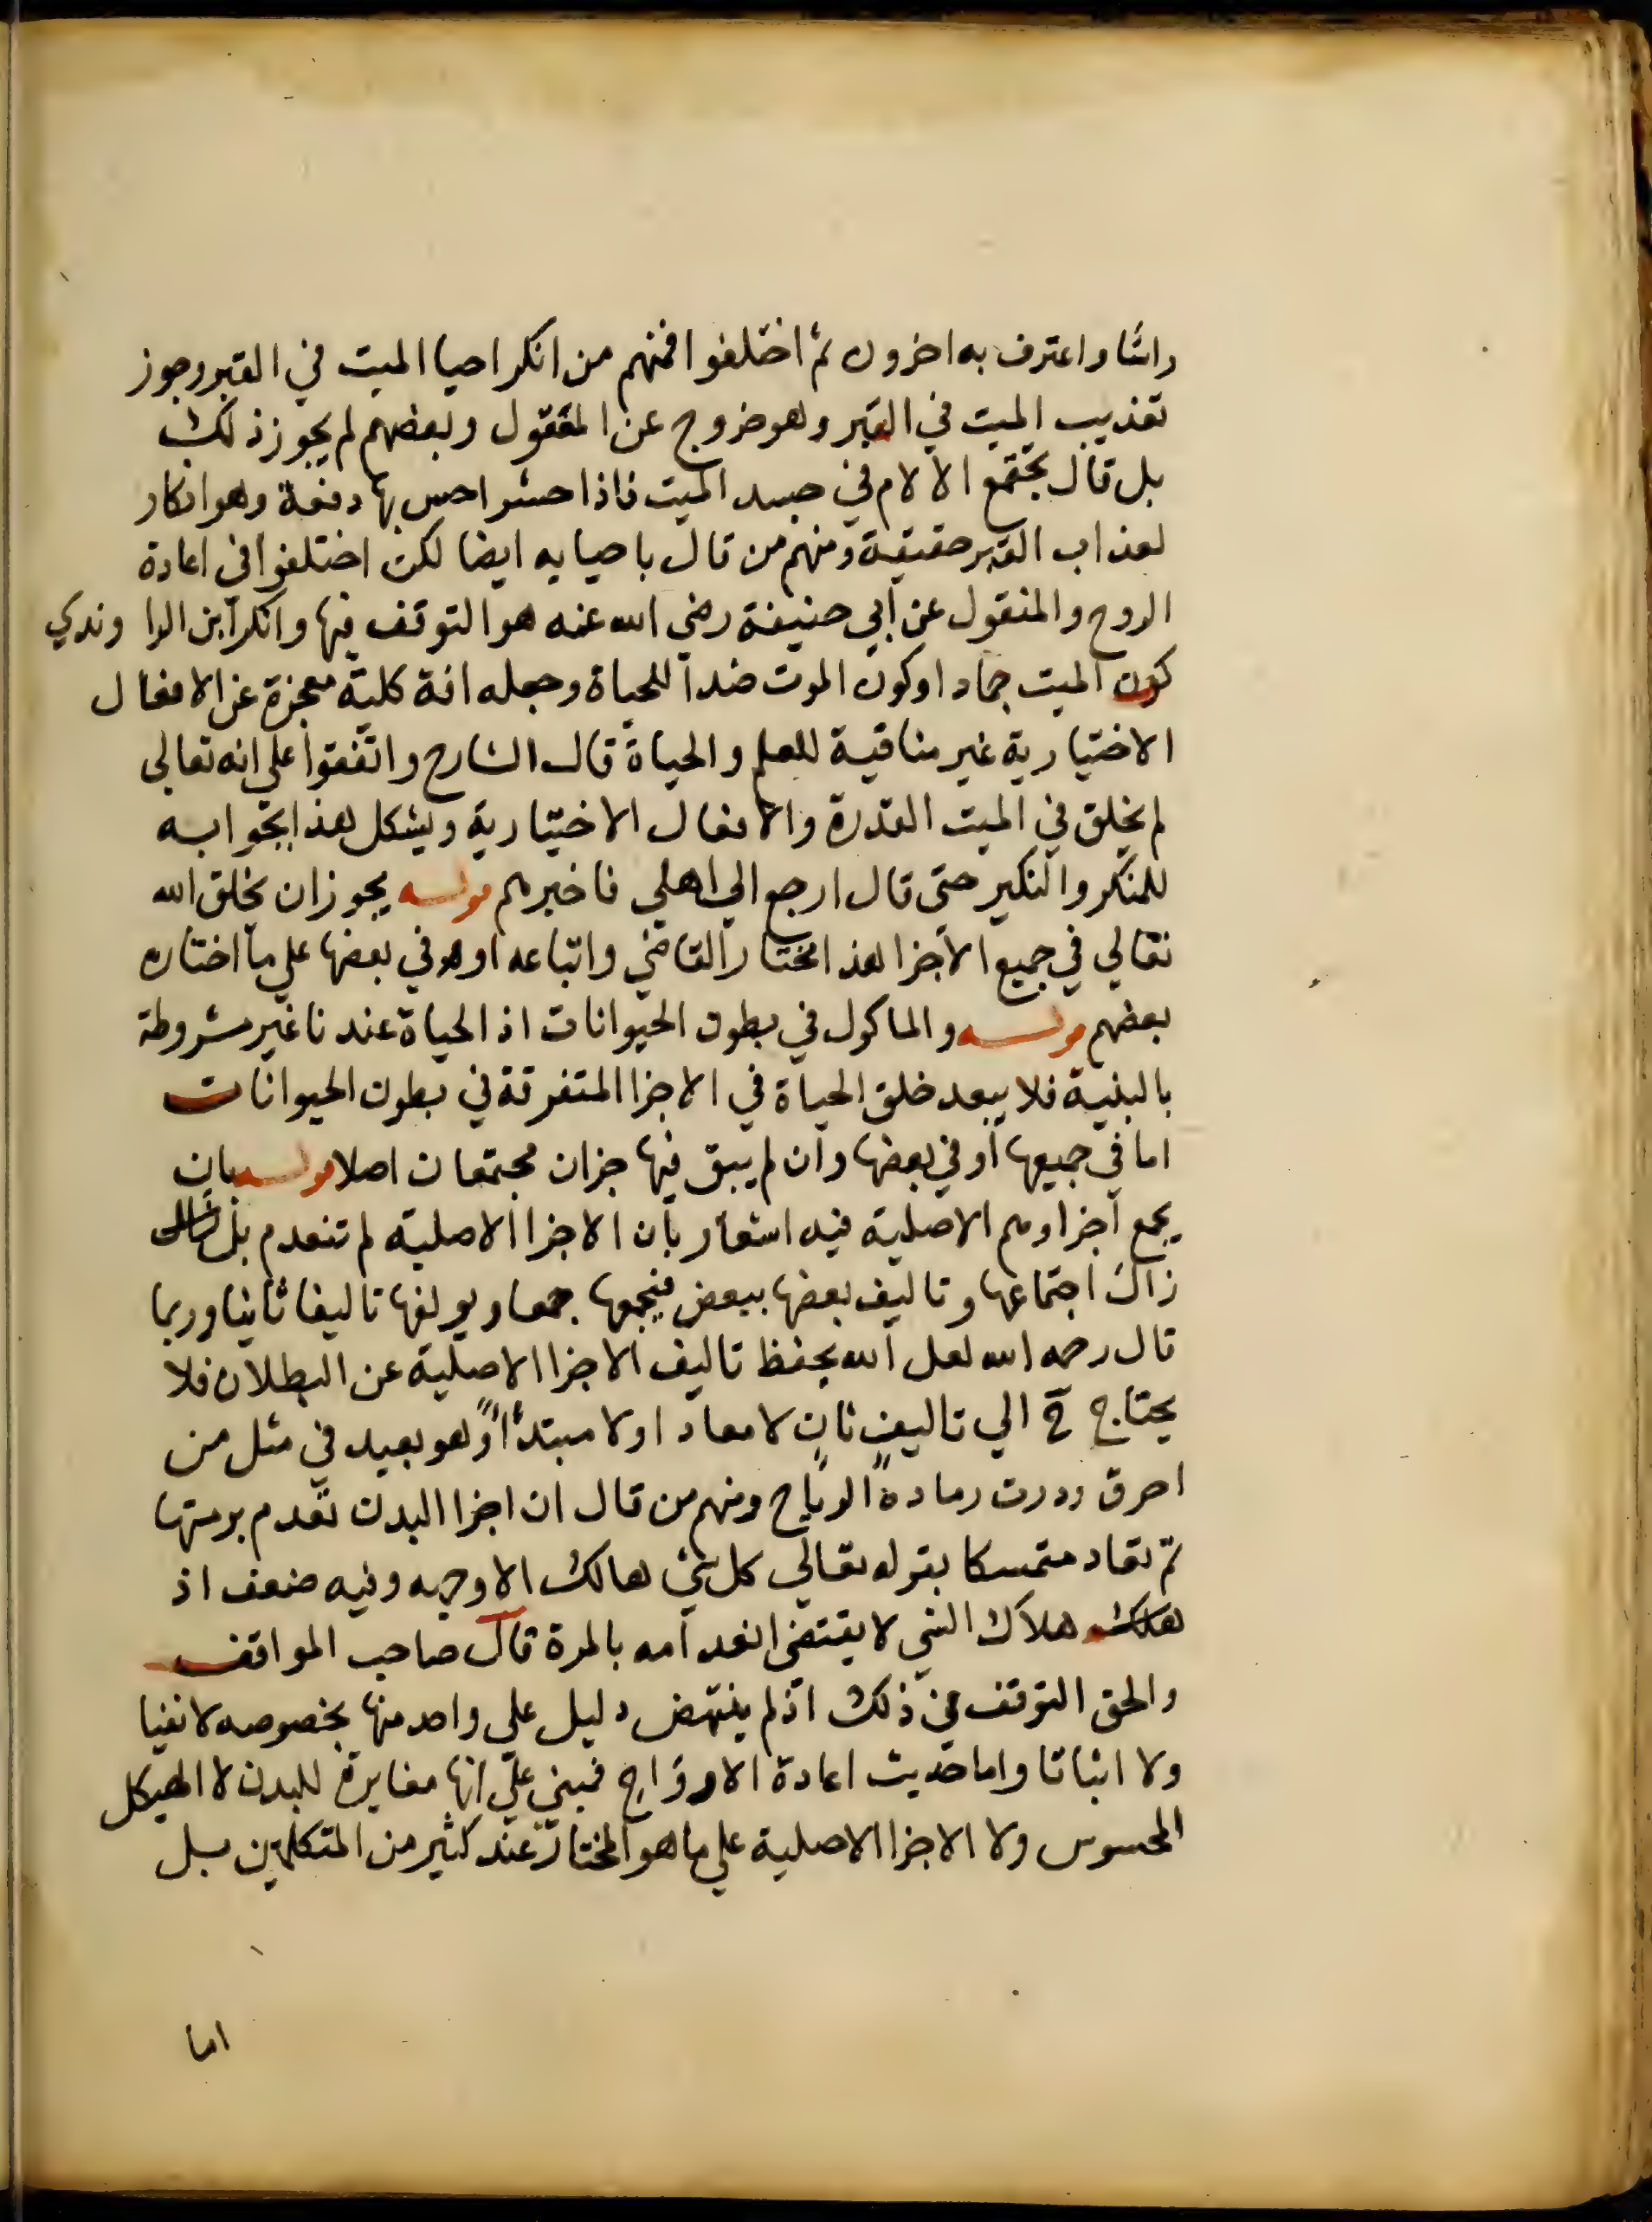 راسًا واعترف به اخرون ثم اختلفوا فمنهم من انكر احيا الميت في القبر وجوز
تعذيب الميت في القبر وهو خروج عن المعقول وبعضهم لم يجوز ذلك
بل قال يجتمع الالام في جسد الميت فاذا حشر احس بها دفعة وهو انكار
لعذاب القبر حقيقة ومنهم من قال باحيايه ايضا لكن اختلفوا في اعادة
الروح والمنقول عن ابي حنيفة رضي الله عنه هو التوقف فيها وانكر ابن الراوندي
كون الميت جمادا وكون الموت ضدا للحياة وجعله افة كلية معجزة عن الافعال
الاختيارية غير منافية للعلم والحياة قال الشارح واتفقوا علي انه تعالي
لم يخلق في الميت القدرة والافعال الاختيارية ويشكل هذا بجوابه
للمنكر والنكير حتي قال ارجع الي اهلي فاخبرهم قوله يجوز ان يخلق الله
تعالي في جميع الاجزا هذا مختار القاضي واتباعه او في بعضها علي ما اختاره
بعضهم قوله والماكول في بطون الحيوانات اذ الحياة عندنا غير مشروطة
بالبنية فلا يبعد خلق الحياة في الاجزا المتفرقة في بطون الحيوانات
اما في جميعها او في بعضها وان لم يبق فيها جزان مجتمعان اصلا قوله بان
يجمع اجزاوهم الاصلية فيه اشعار بان الاجزا الاصلية لم تنعدم بل
زال اجتماعها وتاليف بعضها ببعض فيجمعها جمعا ويولفها تاليفا ثانيا وربما
قال رحمه الله لعل الله يحفظ تاليف الاجزا الاصلية عن البطلان فلا
يحتاج ح الي تاليف ثان لا معادا ولا مبتدأ وهو بعيد في مثل من
احرق وذرت رماده الرياح ومنهم من قال ان اجزا البدن تعدم برمتها
ثم تعاد متمسكا بقوله تعالي كل شي هالك الا وجهه وفيه ضعف اذ
هلاك الشي لا يقتضي انعدامه بالمرة قال صاحب المواقف
والحق التوقف في ذلك اذ لم ينتهض دليل علي واحد منها بخصوصه لا نفيا
ولا اثباتا واما حديث اعادة الارواح فمبني علي انها مغايرة للبدن لا الهيكل
المحسوس ولا الاجزا الاصلية علي ما هو المختار عند كثير من المتكلمين بل
اما